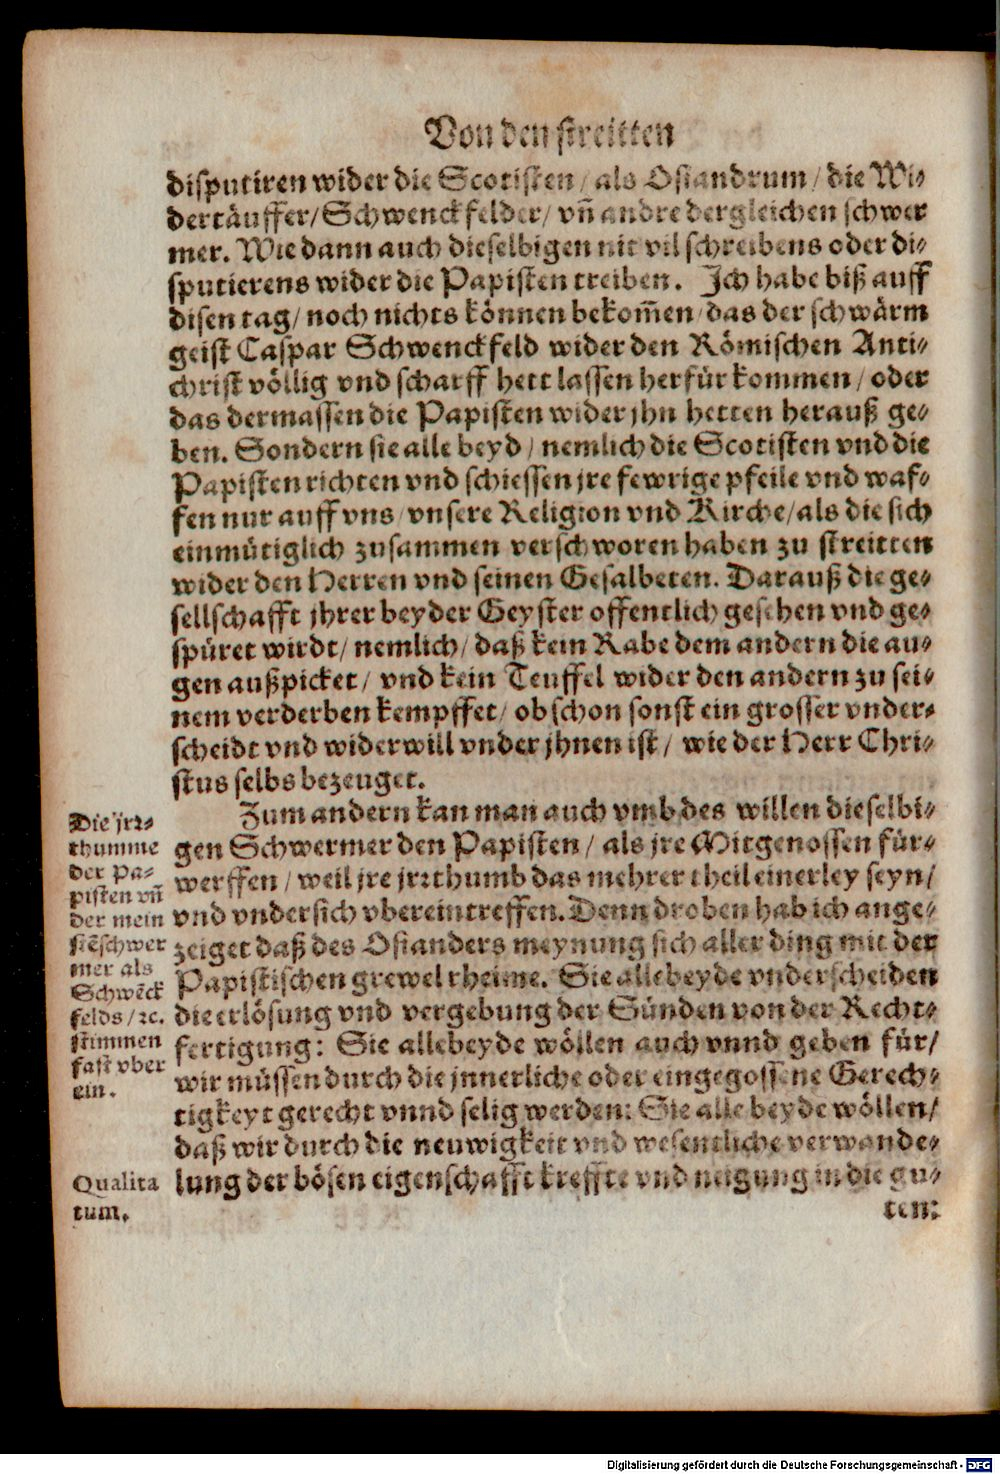 Von den streitten
disputiren wider die Scotisten / als Osiandrum / die Wi-
dertäuffer / Schwenckfelder / vn̄ andre dergleichen schwer
mer. Wie dann auch dieselbigen nit vil schreibens oder di-
sputierens wider die Papisten treiben. Ich habe biß auff
disen tag / noch nichts können bekom̄en / das der schwärm
geist Caspar Schwenckfeld wider den Römischen Anti-
christ völlig vnd scharff hett lassen herfür kommen / oder
das dermassen die Papisten wider jhn hetten herauß ge-
ben. Sondern sie alle beyd / nemlich die Scotisten vnd die
Papisten richten vnd schiessen jre fewrige pfeile vnd waf-
fen nur auff vns / vnsere Religion vnd Kirche / als die sich
einmütiglich zusammen verschworen haben zu streitten
wider den Herren vnd seinen Gesalbeten. Darauß die ge-
sellschafft jhrer beyder Geyster offentlich gesehen vnd ge-
spüret wirdt / nemlich / daß kein Rabe dem andern die au-
gen außpicket / vnd kein Teuffel wider den andern zu sei-
nem verderben kempffet / ob schon sonst ein grosser vnder-
scheidt vnd widerwill vnder jhnen ist / wie der Herr Chri-
stus selbs bezeuget.
Zum andern kan man auch vmb des willen dieselbi-
gen Schwermer den Papisten / als jre Mitgenossen für-
werffen / weil jre jrꝛthumb das mehrer theil einerley seyn /
vnd vnder sich vbereintreffen. Denn droben hab ich ange-
zeiget daß des Osianders meynung sich aller ding mit der
Papistischen grewel rheime. Sie alle beyde vnderscheiden
die erlösung vnd vergebung der Sünden von der Recht-
fertigung: Sie alle beyde wöllen auch vnnd geben für /
wir müssen durch die jnnerliche oder eingegossene Gerech-
tigkeyt gerecht vnnd selig werden: Sie alle beyde wöllen /
daß wir durch die neuwigkeit vnd wesentliche verwande-
lung der bösen eigenschafft kreffte vnd neigung in die gu-
ten:
Die jrꝛ-
thumme
der Pa-
pisten vn̄
der mein
stē schwer
mer als
Schwēck
felds / ꝛc.
stimmen
fast vber
ein.
Qualita
tum.
Digitalisierung gefördert durch die Deutsche Forschungsgemeinschaft - DFG